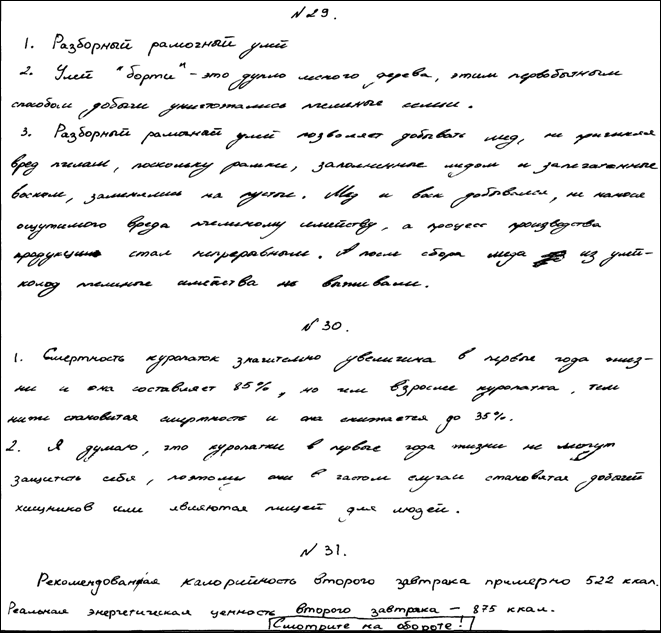 №29.
1. Разборный рамочный улей
2. Улей "борти" - это дупло лесного дерева, этим первобытным
способом добычи уничтожались пчелиные семьи.
3. Разборный рамочный улей позволяет добывать мед, не причиняя
вред пчелам, поскольку рамки, заполненные медом и запечатанные
воском, заменялись на пустые. Мед и воск добывался, не нанося
ощутимого вреда пчелиному семейству, а процесс производства
продукции стал непрерывным. А после сбора меда из улей-
колод пчелиные семейства не выживали.
№30.
1. Смертность куропаток значительно увеличина в первые года жиз-
ни и она составляет 85%, но чем взрослее куропатка, тем
ниже становится смертность и она снижается до 35%.
2. Я думаю, что куропатки в первые года жизни не могут
защитить себя, поэтому они в частом случаи становятся добычей
хищников или являются пищей для людей.
№31.
Рекомендованая калорийность второго завтрака примерно 522 ккал.
Реальная энергетическая ценность второго завтрака - 875 ккал.
Смотрите на обороте!